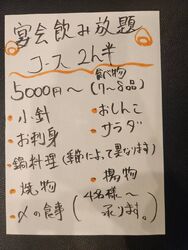 宴会飲み放題
コース 2h半
5000円〜 食べ物(7〜8品)
・小針 ・おしんこ
・お刺身 ・サラダ
・鍋料理(季節によって異なります)
・焼物 ・揚物
・〆の食事 (4名様〜承ります。)